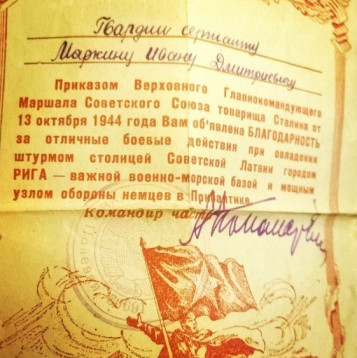 Гвардии сержанту
Маркину Ивану Дмитриевичу
Приказом Верховного Главнокомандующего
Маршала Советского Союза товарища Сталина от
13 октября 1944 года Вам об'явлена БЛАГОДАРНОСТЬ
за отличные боевые действия при овладении
штурмом столицей Советской Латвии городом
РИГА — важной военно-морской базой и мощным
узлом обороны немцев в Прибалтике.
Командир части